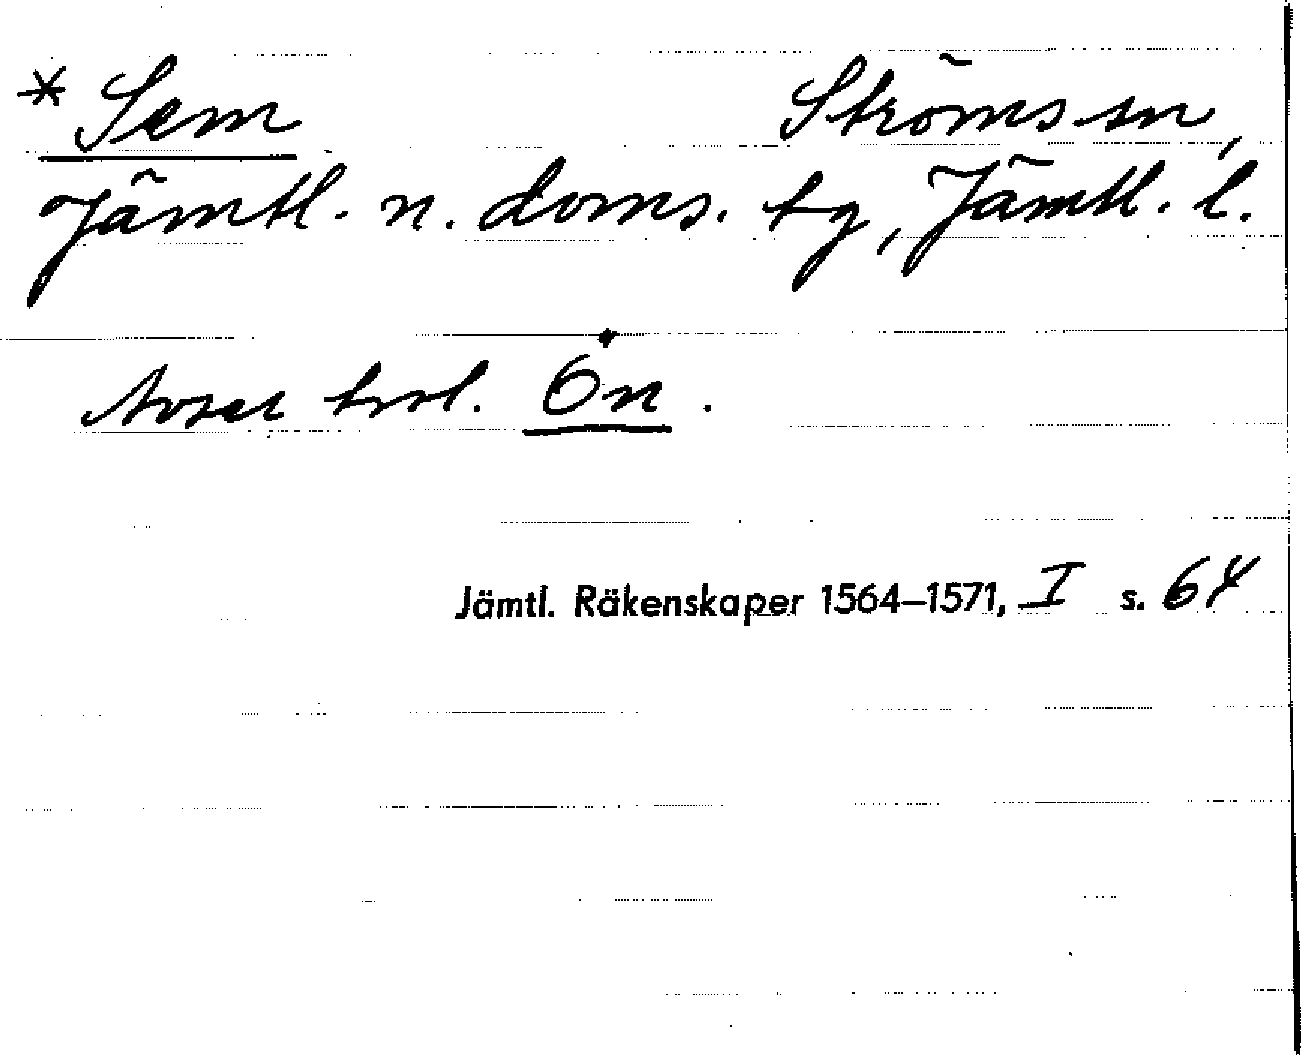 * Sem Ströms sn,
Jämtl. n. doms. tg, Jämtl. l.
Avser trol. Ön.
Jämtl. Räkenskaper 1564–1571, I s. 64